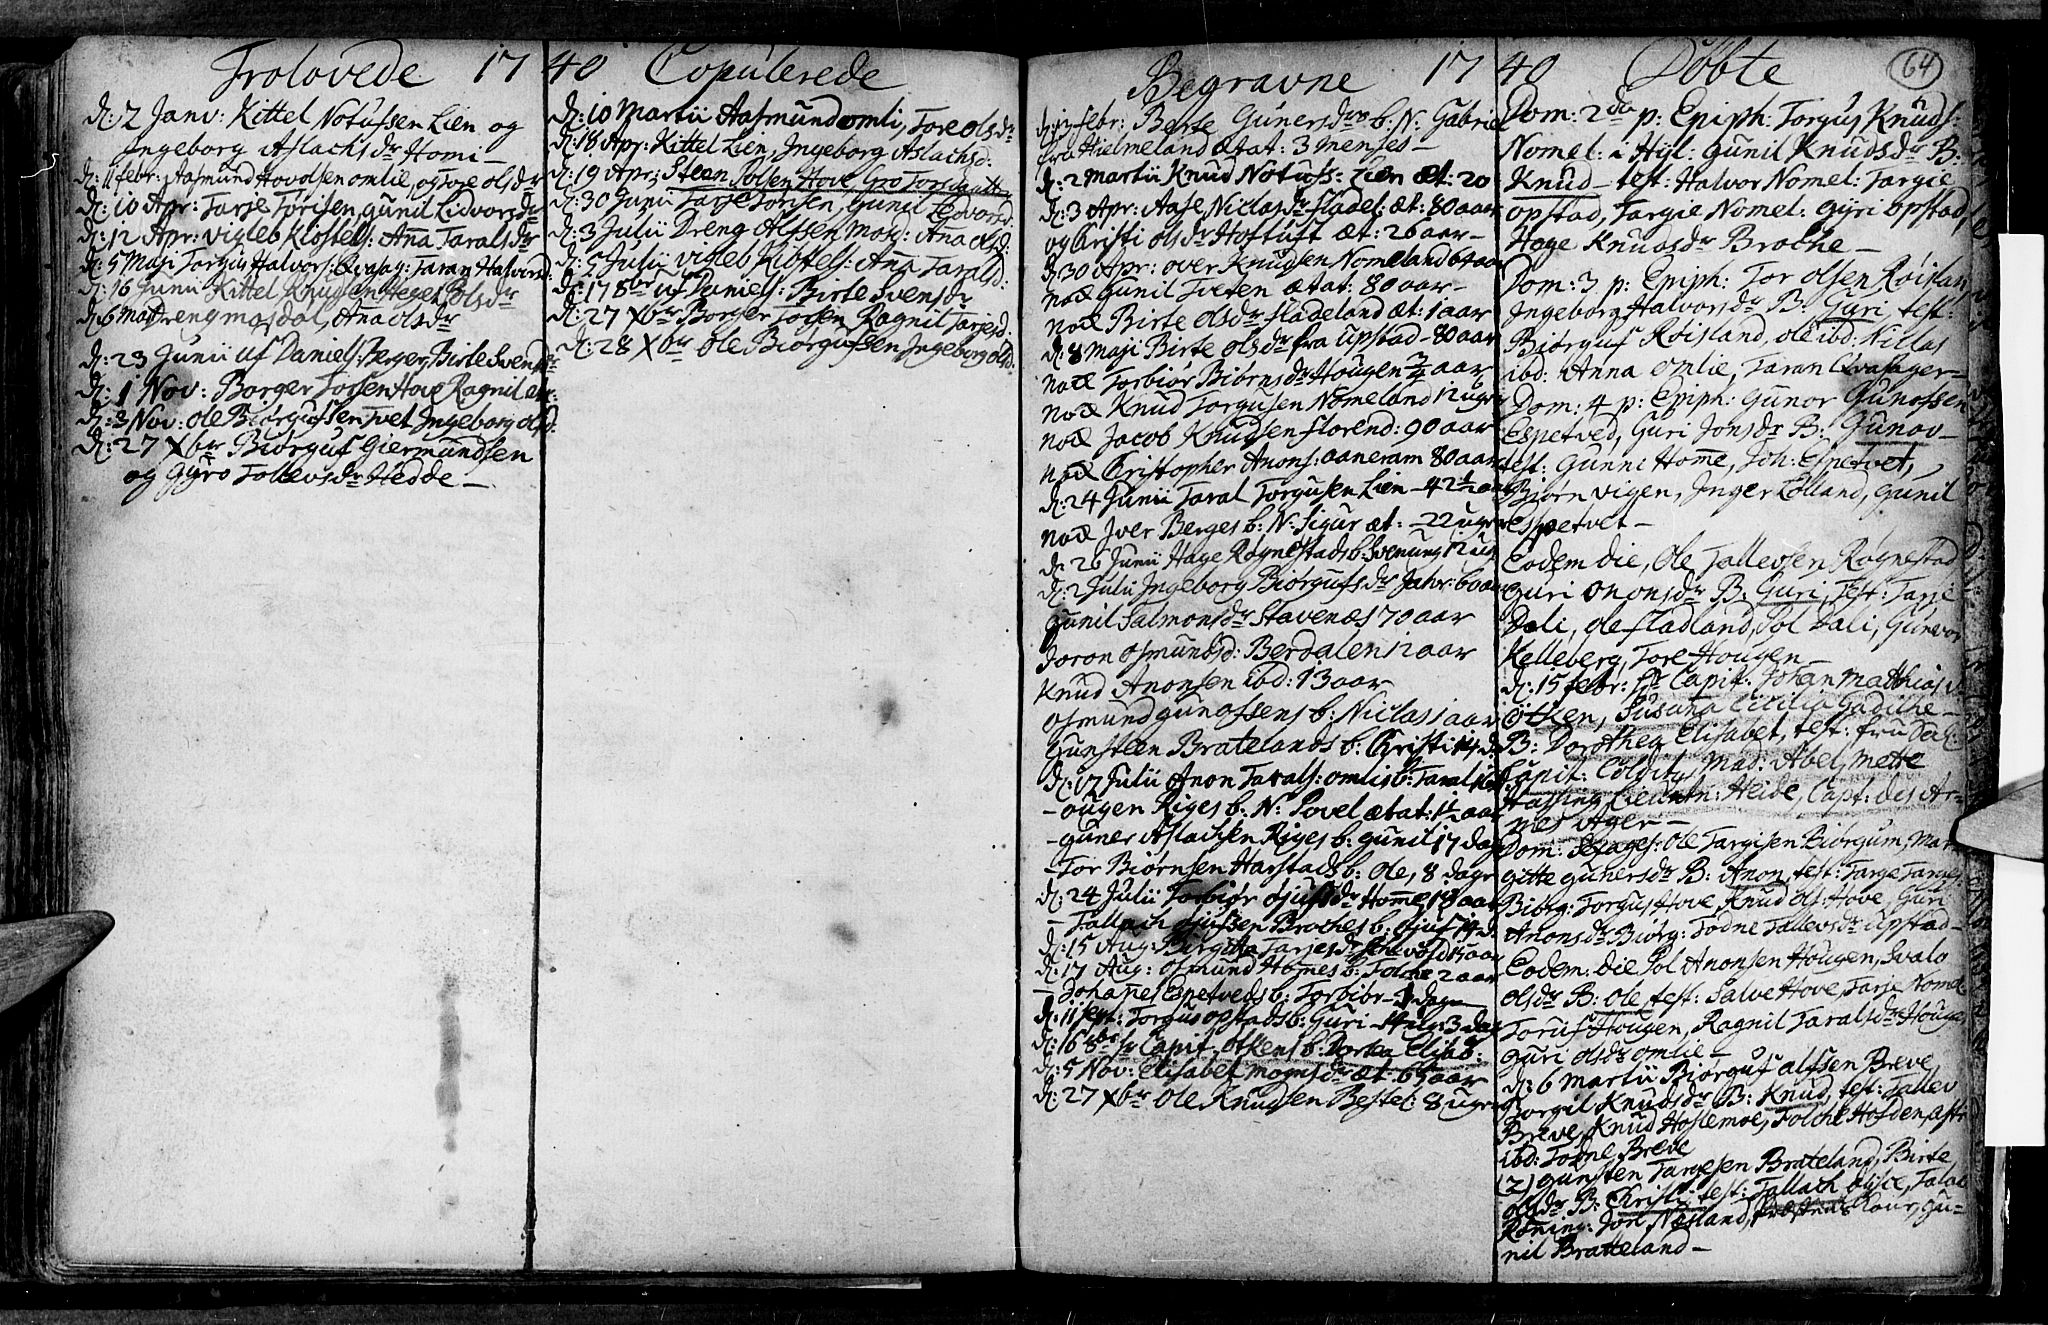 Trolovede 1740
d: 2 Janv: Kittel Notufsen Lien og
Ingeborg Aslachsdr Homi-
d: 11 febr: Aasmund Hovolsen omlie, og Tore olsdr
d: 10 Apr: Tarje Torisen, gunil Lidvorsdr
d: 12 Apr: vigleb Kiostels: Anna Taralsdr
d: 5 Maji Torgus Halvors: Qvasag: Taran Halvorsd:
d: 16 Junii Kittel Knudsen Heget olsdr
d: 6 Mart Dreng mosdal, Ana olsdr
d: 23 Junii uf Daniels: Berger, Birte Svensdr
d: 1 Nov: Borger Torsen Hove Ragnil
d: 3 Nov: ole Biørgufsen Ingeborg olsd:
d: 27 Xbr Biørguf Giermundsen
og Gyro Tollevsdr Hedde-
Copulerede
d: 10 Martii Aasmund omli, Tore olsdr
d: 18 Apr: Kittel Lien, Ingeborg Aslachsd:
d: 19 Apr: Steen Polsen Hove, Gro
d: 30 Junii Tarje Torsen, Gunil Ledvorsd:
d: 3 Julii Dreng Alfsen Mosg: Ana olsd:
d: 5 Julii vigleb Kibstels: Ana Taralsd:
d: 17 8br uf Daniels: Birte Svensdr
d: 27 Xbr Borger Torsen Ragnil Tarjesd:
d: 28 Xbr Ole Biørgufsen Ingeborg olsd:
Begravne 1740
febr: Berte Gunersdrs b: N: Gabriel
fra Hielmeland ætat: 3 menses-
d: 2 Martii Knud Notufs: Lien æt: 20
d: 3 Apr: Aase Niclasdr fladel: æt: 80 aar
og Kristi olsdr Hoftuft æt: 26 aar-
d: 30 Apr: over Knudsen Nomeland 64 aar
nod Gunil Tveten ætat: 80 aar-
nod Birte olsdr fladeland æt: 1 aar
d: 8 Maji Birte olsdr fra upstad - 80 aar
nod Torbiør Biørnsdr Hougen 3/4 aar
nod Knud Torgusen Nomeland 12 uger
nod Jacob Knudsen florend: 90 aar
nod Christopher Anons: aaneram 80 aar
d: 24 Junii Taral Torgusen Lien - 42 1/2 aar
nod Iver Berges b: N: Sigur æt: -22 uger
d: 26 Junii Hage Rognestads b: Svenung 12 ug
d: 2 Julii Ingeborg Biørgufsdr Jahr: 60 aar
Gunil Salmonsdr Stavenæs 70 aar
Joron osmundsd: Berdalen 12 aar
Knud Anonsen ibd: 13 aar
osmund gunofsens b: Niclas 1 aar
Gunsteen Bratelands b: Christi 14 d
d: 17 Julii Anon Tarals: omlis b: Taral
- ougen Riges b: N: Povel ætat: 1 1/2 aar
- guner Aslachsen Riges b: gunil 17 dag
- Tor Biørnsen Harstads b: Ole, 8 dage
d: 24 Julii Torbiør Giufsdr Home 18 aar
- Tallach Giufsen Broches b: Giuf 14 d:
d: 15 Aug: Bergitta Tarjesdr
d: 17 Aug: osmund Homes b: Folche 2 aar
- Johannes Espetveds b: Torbiør - dage
d: 11 Sept: Torgus opstads b: Guri - 3 dag
d: 16 8br Sr Capit: Otkens b: Dortea Elisab:
d: 5 Nov: Elisabet mognsdr æt: 65 aar
d: 27 Xbr Ole Knudsen Bestel: 8 uger
Døbte
64
Dom: 2da p: Epiph: Torgus Knuds:
Nomel: i Hyl: Gunil Knudsdr B:
Knud - test: Halvor Nomel: Targie
opstad, Targie Nomel: Gyri opstad,
Hage Knudsdr Broche-
Dom: 3 p: Epiph: Tor olsen Røislan,
Ingeborg Halvorsdr B: Guri, test:
Biørguf Røisland, ole ibd: Niclas
ibd: Anna omlie, Taran Qvasager-
Dom: 4 p: Epiph: Gunor Gunofsen
Espetved, Guri Jonsdr B: Gunov-
test: Gunni Home, Joh: Espetvet,
Biørn vigen, Inger Lolland, Gunil
Espetvet-
Eodem die, Ole Tallevsen Rognestad
Guri Ononsdr B: Guri, Test: Tarje
Dali, ole fladland, Sol Dali, Gunevor
Kelleberg, Tore Hougen-
d: 15 febr: Sr Capit: Johan Matthias
Otken, Susana Cecilia Gaduhe-
B: Dorothea Elisabet, test: fru
Capit: Mad: Abel, Mette
Hassing, Lieutn: Heide, Capt: des Ar-
nes Ager-
Dom: Sexages: Ole Targisen Biørgum, Mar
gitte gunersdr B: Anon, test: Tarje Tarjes:
Biørg: Torgus Hove, Knud ols: Hove, Guri
Anonsdr Biørg: Todne Tallevsdr upstad-
Eodem: die Sol Anonsen Hougen, Svalo
olsdr B: ole, test: Salve Hove, Tarje Nomel
Toruf Hougen, Ragnil Taralsdr Hougen,
Guri olsdr omlie-
d: 6 Martii Biørguf alfsen Breve
Borgil Knudsdr B: Knud, test: Tallev
Breve, Knud Hoslemoe, Folche Hofden,
ibd: Todne Breve
(2) Gunsten Targesen Brateland, Birte
olsdr B: Christi, test: Tallach
Røning: Jon Næsland, Gu-
nil Bratteland-